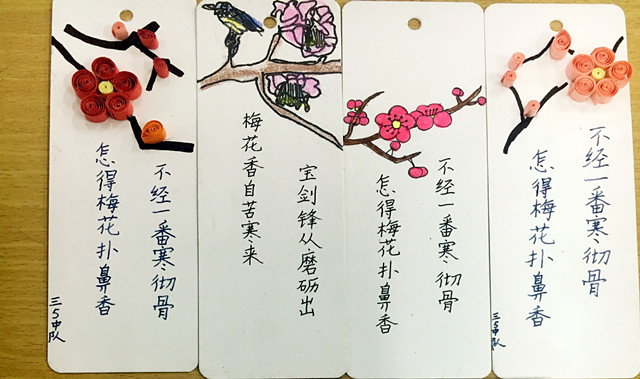 不经一番寒彻骨
怎得梅花扑鼻香
三5中队
宝剑锋从磨砺出
梅花香自苦寒来
不经一番寒彻骨
怎得梅花扑鼻香
不经一番寒彻骨
怎得梅花扑鼻香
三5中队